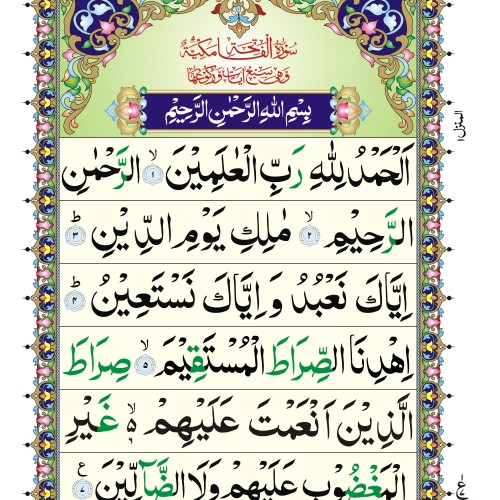 سُوْرَةُ الْفَاتِحَةِ مَكِّيَّةٌ
وَّهِيَ سَبْعُ اٰيَاتٍ وَّرُكُوْعُهَا
بِسْمِ اللّٰهِ الرَّحْمٰنِ الرَّحِيْمِ
اَلْحَمْدُ لِلّٰهِ رَبِّ الْعٰلَمِيْنَ ۙ۱ الرَّحْمٰنِ
الرَّحِيْمِ ۙ۲ مٰلِكِ يَوْمِ الدِّيْنِ ؕ۳
اِيَّاكَ نَعْبُدُ وَ اِيَّاكَ نَسْتَعِيْنُ ؕ۴
اِهْدِنَا الصِّرَاطَ الْمُسْتَقِيْمَ ۙ۵ صِرَاطَ
الَّذِيْنَ اَنْعَمْتَ عَلَيْهِمْ ۙ۬ غَيْرِ
الْمَغْضُوْبِ عَلَيْهِمْ وَلَا الضَّآلِّيْنَ ۷ ع
المنزل ۱